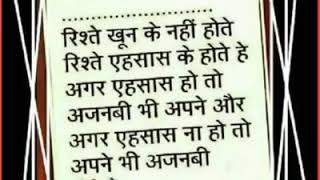 रिश्ते खून के नहीं होते
रिश्ते एहसास के होते हे
अगर एहसास हो तो
अजनबी भी अपने और
अगर एहसास ना हो तो
अपने भी अजनबी